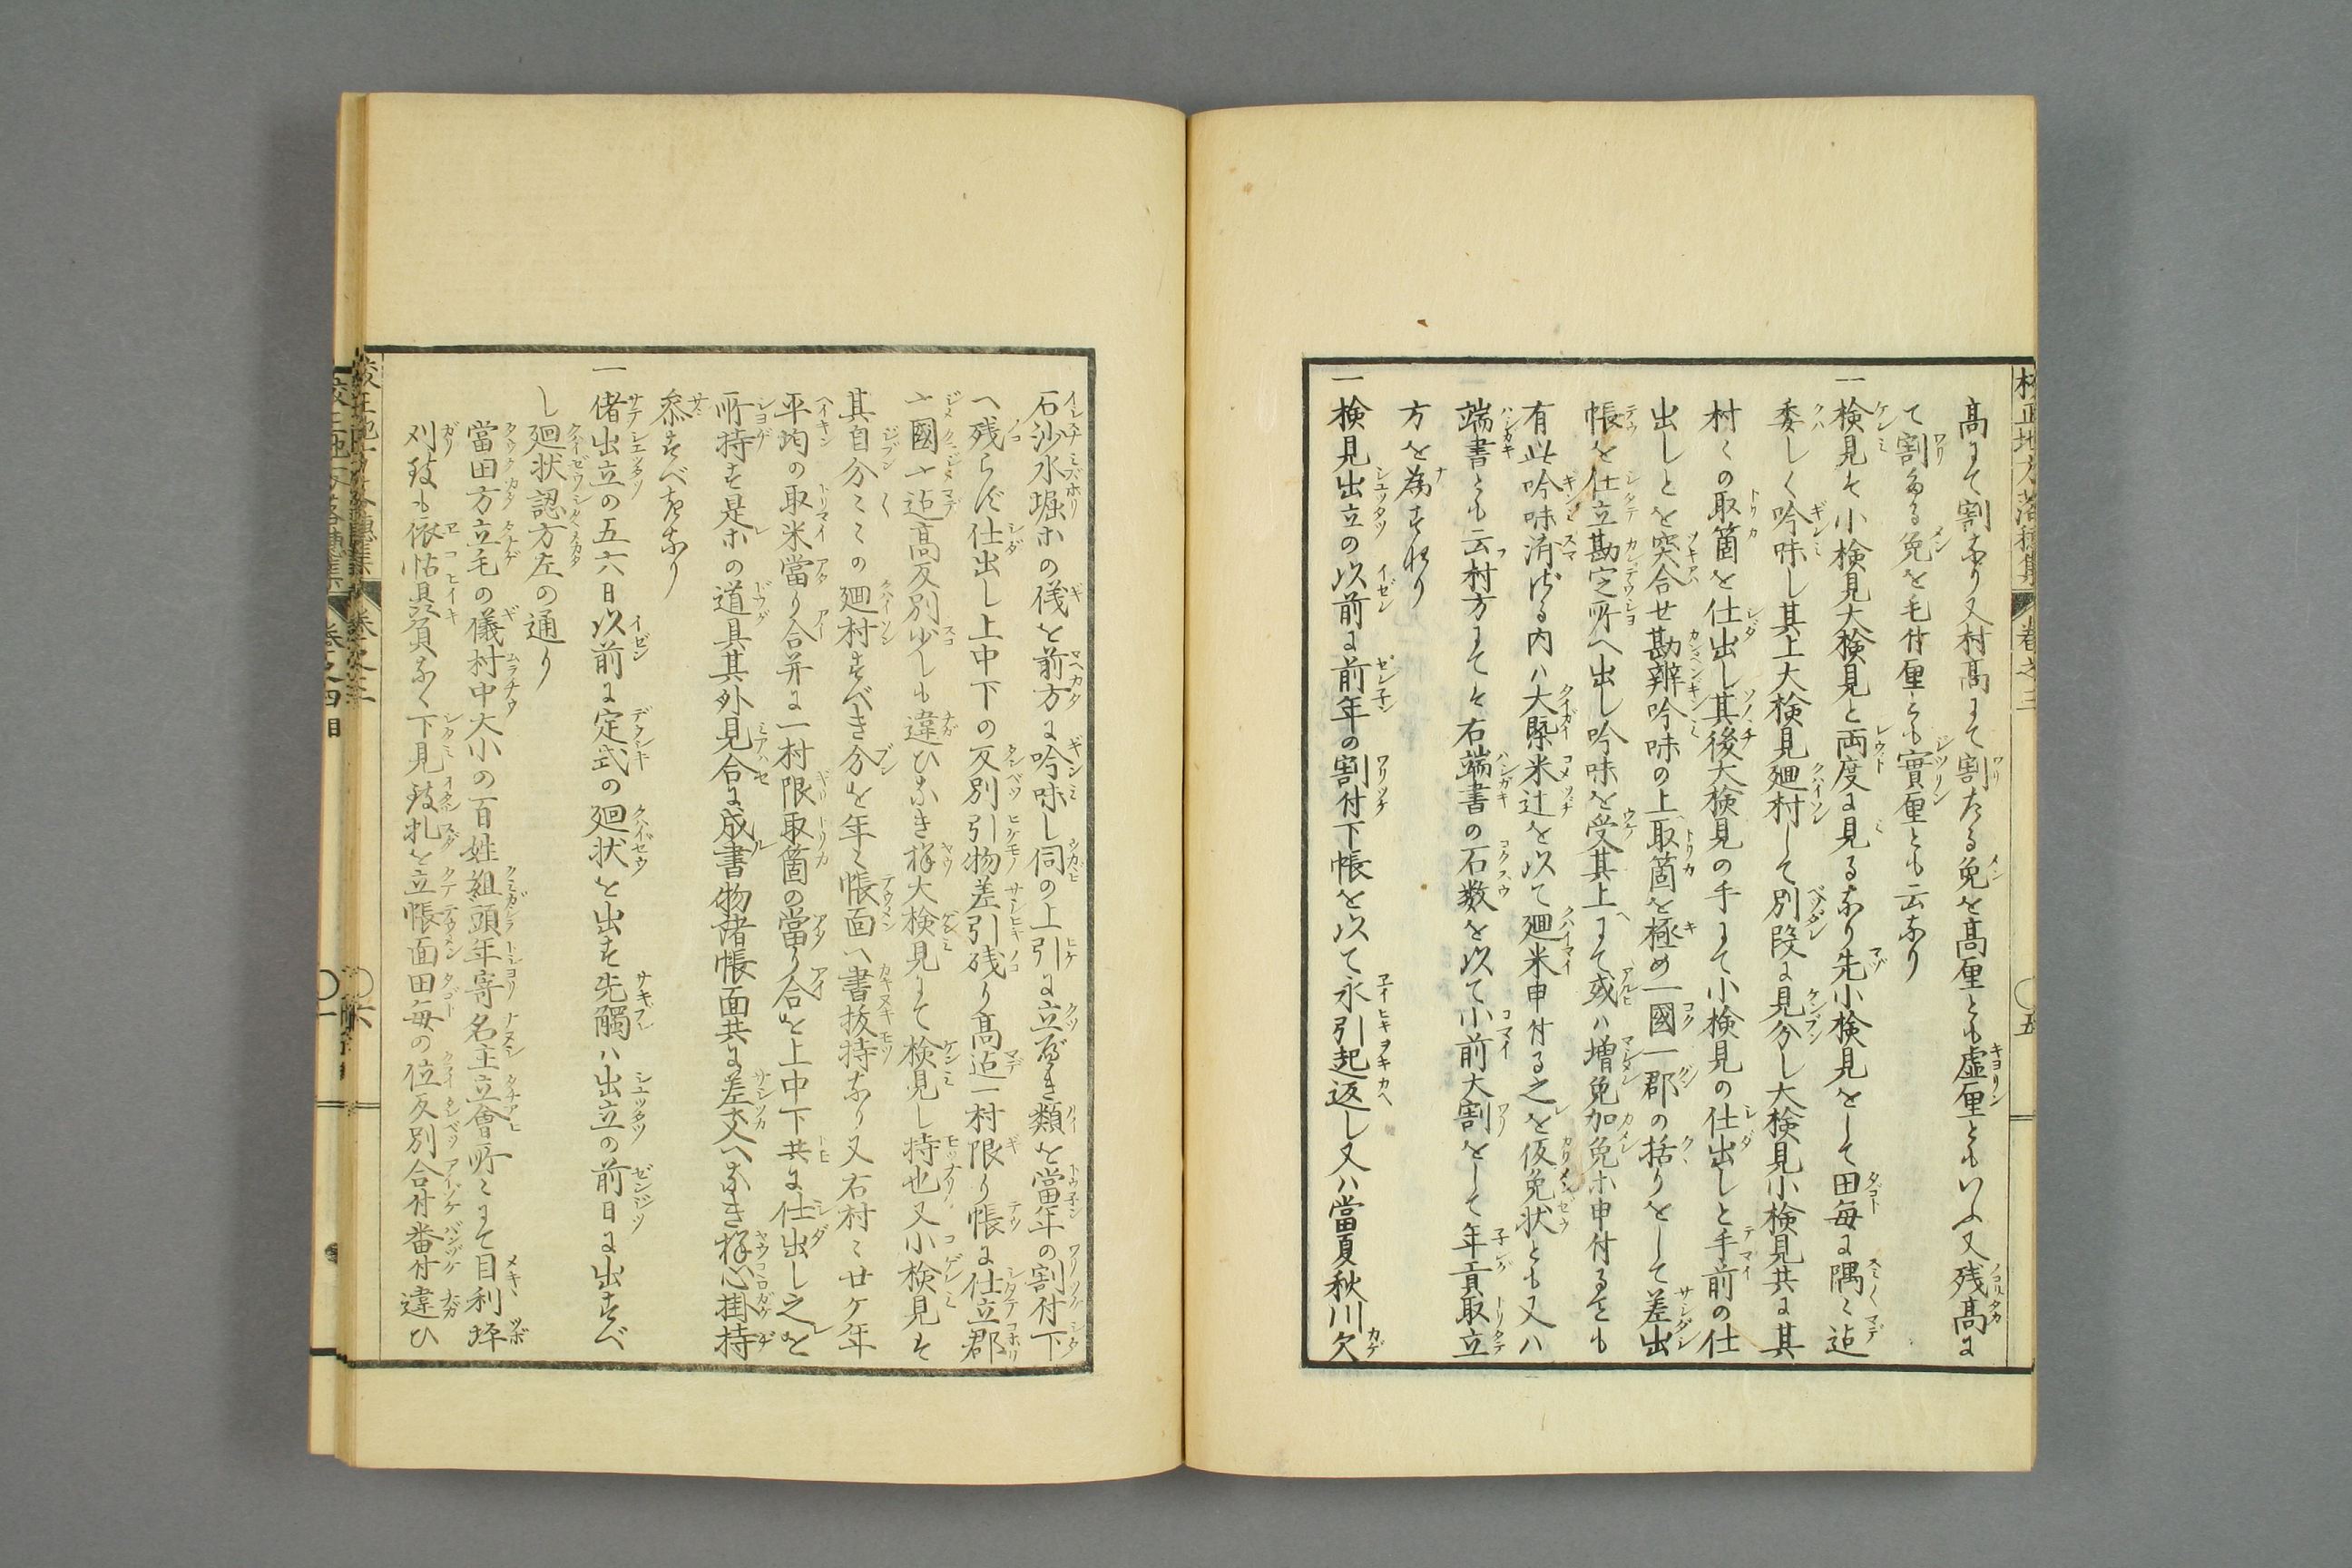 高にて割なり又村高にて割たる免を高厘とも虚厘ともいふ又残高に
て割たる免を毛付厘とも實厘とも云なり
一検見は小検見大検見と両度に見るなり先小検見をして田毎に隅〻迠
委しく吟味し其上大検見廻村して別段に見分し大検見小検見共に其
村〻の取箇を仕出し其後大検見の手にて小検見の仕出しと手前の仕
出しとを突合せ勘辨吟味の上取箇を極め一國一郡の括りをして差出
帳を仕立勘定所へ出し吟味を受其上にて或ハ増免加免ホ申付るも
有此吟味済ざる内ハ大槩米辻を以て廻米申付る之を仮免状とも又ハ
端書とも云村方にては右端書の石数を以て小前大割をして年貢取立
方を為すなり
一検見出立の以前に前年の割付下帳を以て永引起返し又ハ當夏秋川欠
石沙水堀ホの儀を前方に吟味し伺の上引に立べき類を當年の割付下
へ残らず仕出し上中下の反別引物差引残り高迠一村限り帳に仕立郡
〆國〆迠高反別少しも違ひなき様大検見にて検見し持也又小検見は
其自分〻〻の廻村すべき分を年〻帳面へ書抜持なり又右村〻廿ケ年
平均の取米當り合并に一村限取箇の當り合を上中下共に仕出し之を
所持す是ホの道具其外見合に成書物諸帳面共に差支へなき様心掛持
叅すべきなり
一偖出立の五六日以前に定式の廻状を出す先觸ハ出立の前日に出すべ
し廻状認方左の通り
當田方立毛の儀村中大小の百姓組頭年寄名主立會所〻にて目利坪
刈致も依怙贔屓なく下見致札を立帳面田毎の位反別合付番付違ひ